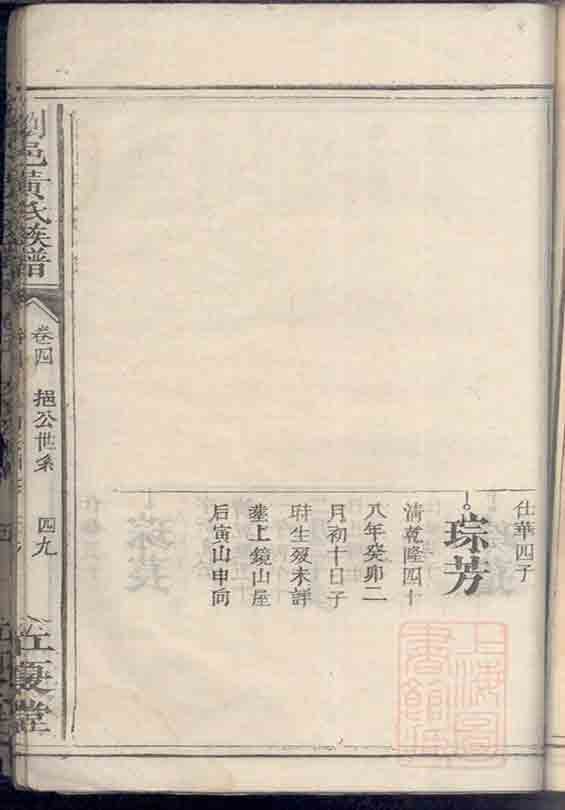 仕華四子
琮芳
清乾隆四十
八年癸卯二
月初十日子
時生歿未詳
塟上鏡山屋
后寅山申向
劉邑黃氏族譜
卷四 挹公世系 四九
慶堂
上海圖書館藏